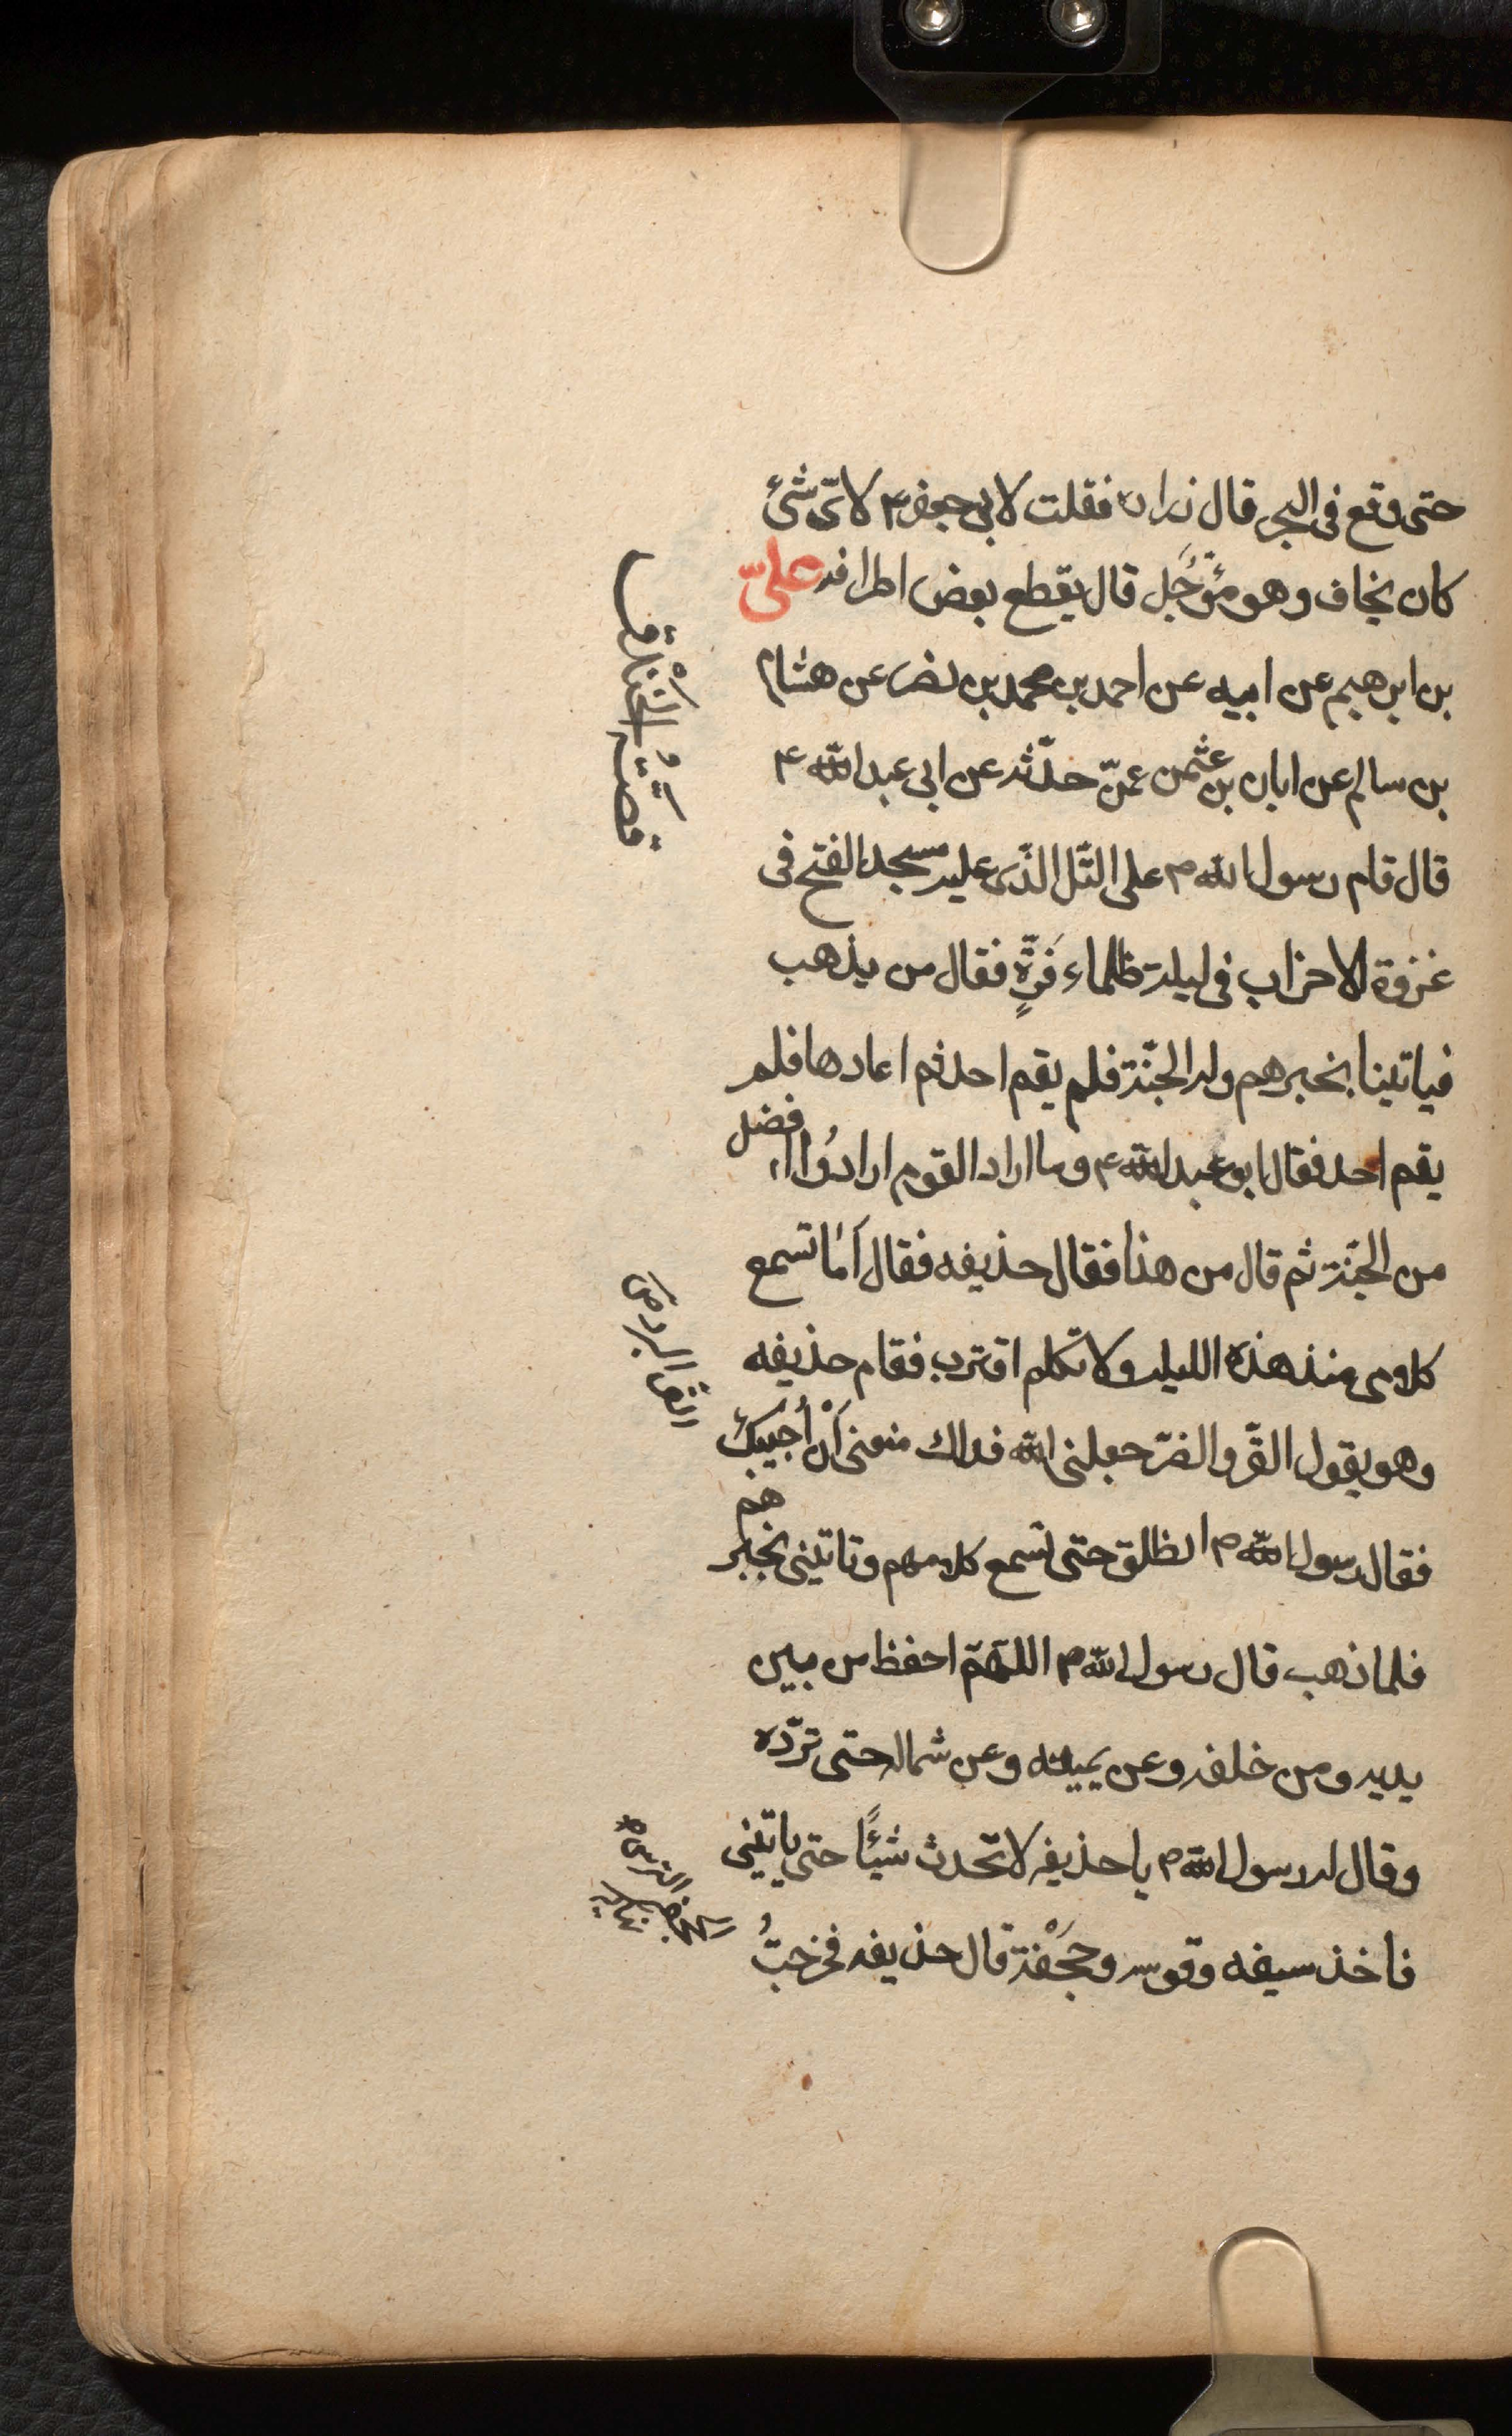 حتى وقع فى البحر قال زرارة فقلت لابى جعفر ع لاىّ شئ
كان يخاف وهو مؤجَّل قال يقطع بعض اطرافه علىّ
بن ابرهيم عن ابيه عن احمد بن محمد بن نصر عن هشام
بن سالم عن ابان بن عثمن عمّن حدّثه عن ابى عبد الله ع
قال قام رسول الله ص على التّل الذّى عليه مسجد الفتح فى
غزوة الاحزاب فى ليلة ظلماء قَرّةٍ فقال من يذهب
فياتينا بخبرهم وله الجنّة فلم يقم احد ثم اعادها فلم
يقم احد فقال ابو عبد الله ع وما اراد القوم ارادُوا افضل
من الجنّة ثم قال من هذا فقال حذيفه فقال اَمَا تسمع
كلامى منذ هذه الليلة ولا تكلم اقترب فقام حذيفه
وهو يقول القّر والضّر جعلنى الله فداك منعنى اَنْ اُجيبَكَ
فقال رسول الله ص انطلق حتى تسمع كلامهم وتاتينى بخبرهم
فلما ذهب قال رسول الله ص اللهمّ احفظ من بين
يديه ومن خلفه وعن يمينه وعن شماله حتى تردّه
وقال له رسول الله ص يا حذيفه لا تحدث شيئًا حتى ياتينى
فاخذ سيفه وقوسه وحَجْفَة قال حذيفه فخرجتُ
قصّةُ الخَنْدق
القرّ البرد ص
الترس